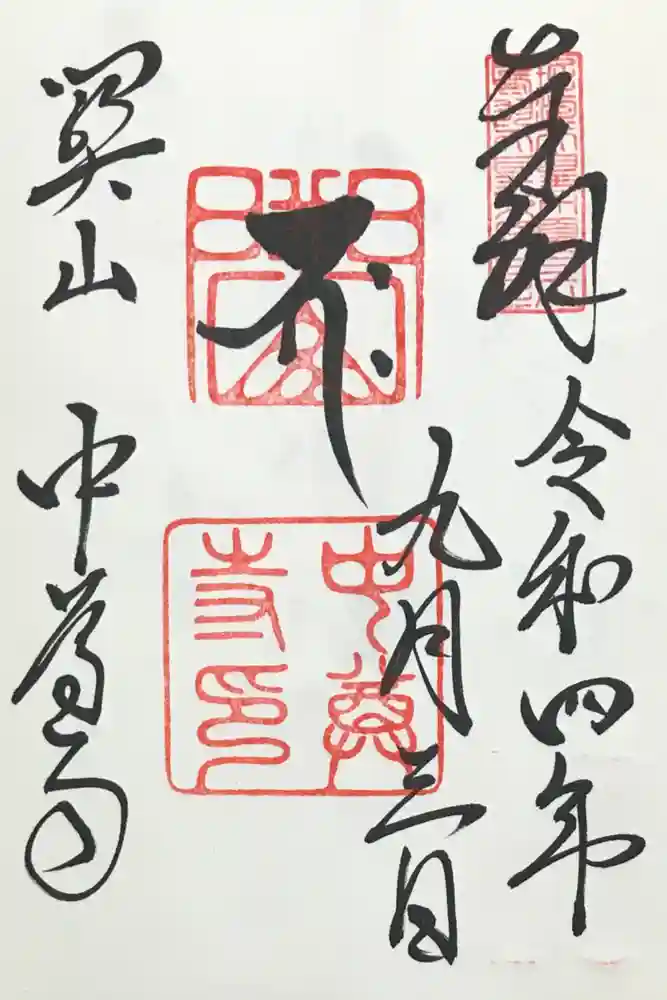 奉拝
令和四年
九月三日
関山
中尊
寺印
関山 中尊寺